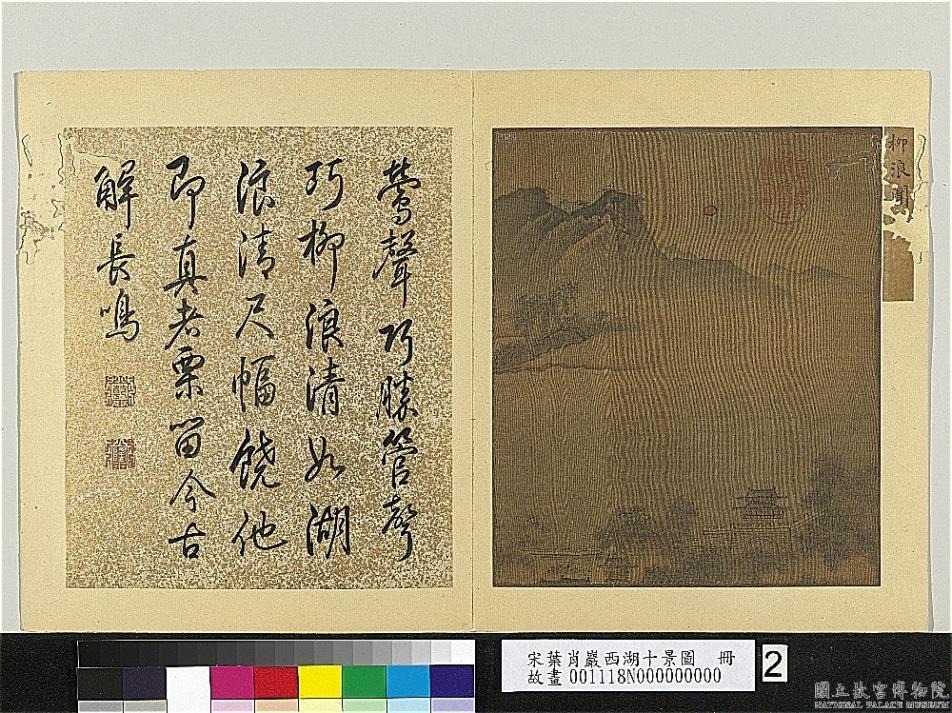 柳浪聞
鶯聲巧勝管聲
巧柳浪清如湖
浪清尺幅饒他
即真者栗留今古
解長鳴
宋葉肖巖西湖十景圖 冊
故畫 001118N000000000
2
國立故宮博物院
NATIONAL PALACE MUSEUM